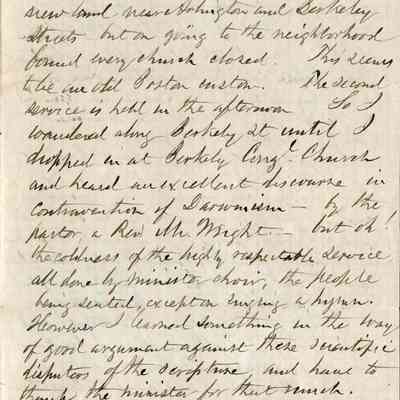 new land near Arlington and Berkeley
Streets but on going to the neighborhood
found every church closed. This seems
to be an old Boston custom. The second
service is held in the afternoon So I
wandered along Berkely St until I
dropped in at Berkely Congl. Church
and heard an excellent discourse in
contravention of Darwinism — by the
pastor, a Rev. Mr. Wright. — but oh!
the coldness of the highly respectable service
all done by minister & choir, the people
being seated, except on singing a hymn.
However I learned something in the way
of good argument against these scientific
disputers of the scripture, and have to
thank the minister for that much.